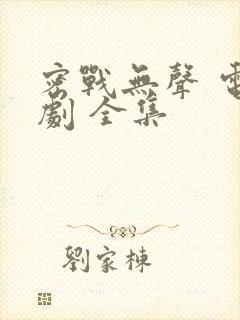 密戰無聲 電
劇 全集
劉家棟